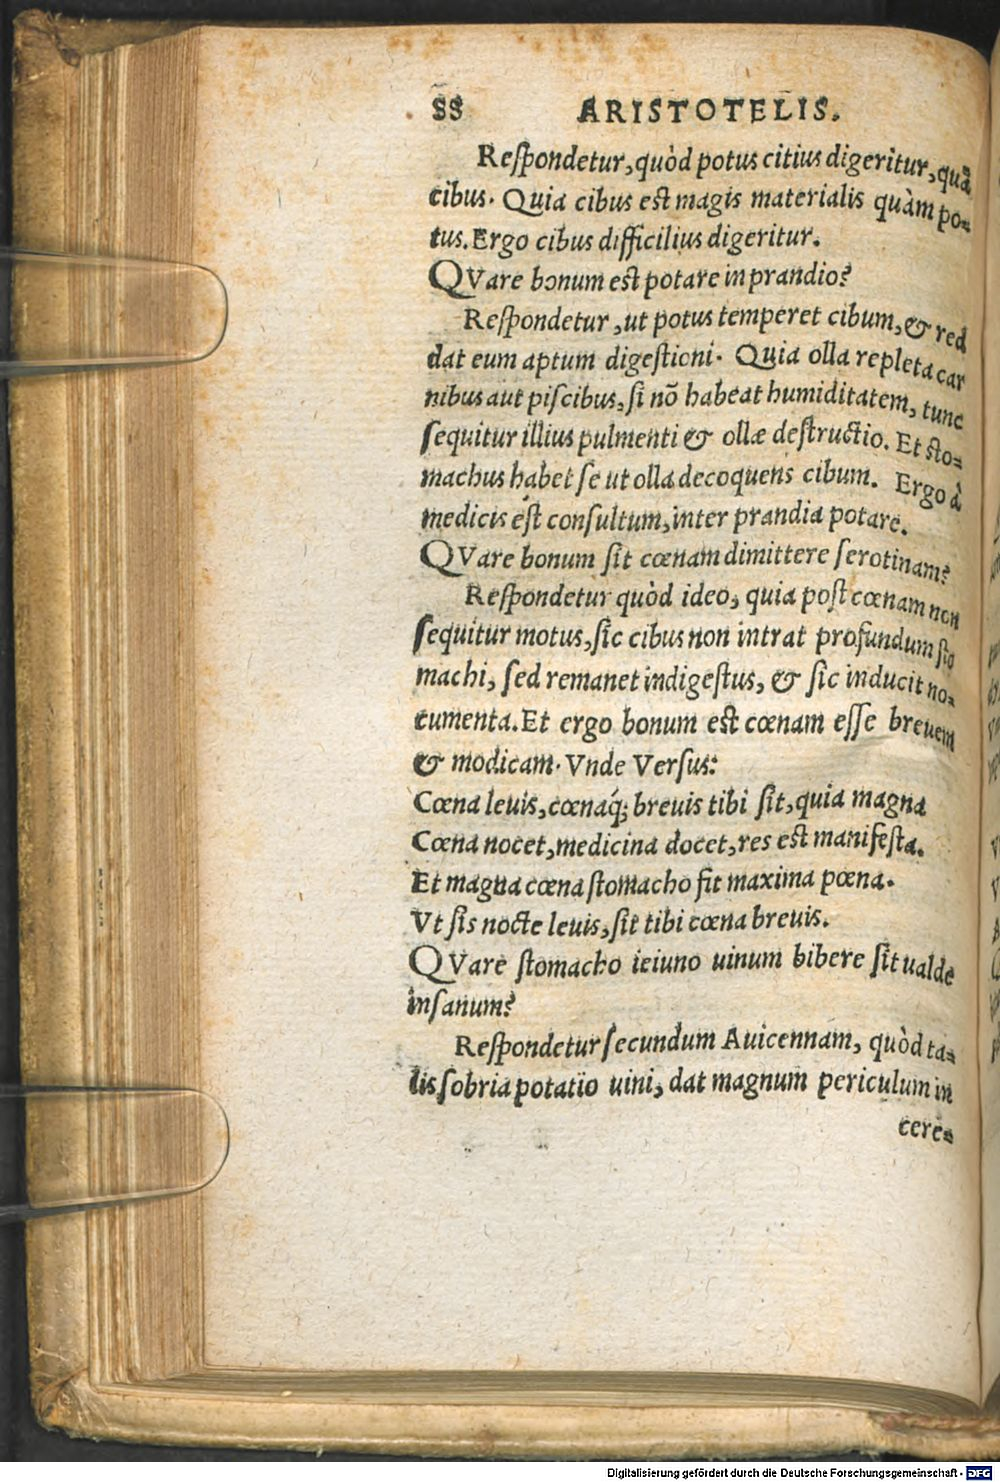 88 ARISTOTELIS.
Reſpondetur, quòd potus citius digeritur, quã
cibus. Quia cibus est magis materialis quàm po-
tus. Ergo cibus difficilius digeritur.
QVare bonum est potare in prandio?
Reſpondetur, ut potus temperet cibum, & red
dat eum aptum digeſtioni. Quia olla repleta car
nibus aut piſcibus, ſi nõ habeat humiditatem, tunc
ſequitur illius pulmenti & ollæ deſtructio. Et sto-
machus habet ſe ut olla decoquens cibum. Ergo à
medicis eſt conſultum, inter prandia potare.
QVare bonum ſit cœnam dimittere ſerotinam?
Reſpondetur quòd ideo, quia poſt cœnam non
ſequitur motus, ſic cibus non intrat profundum ſto
machi, ſed remanet indigeſtus, & ſic inducit no-
cumenta. Et ergo bonum est cœnam eſſe breuem
& modicam. Vnde Verſus:
Cœna leuis, cœnaq́; breuis tibi ſit, quia magna
Cœna nocet, medicina docet, res est manifeſta.
Et magna cœna ſtomacho fit maxima pœna.
Vt ſis nocte leuis, ſit tibi cœna breuis.
QVare ſtomacho ieiuno uinum bibere ſit ualde
inſanum?
Reſpondetur ſecundum Auicennam, quòd ta-
lis ſobria potatio uini, dat magnum periculum in
cere-
Digitalisierung gefördert durch die Deutsche Forschungsgemeinschaft - DFG